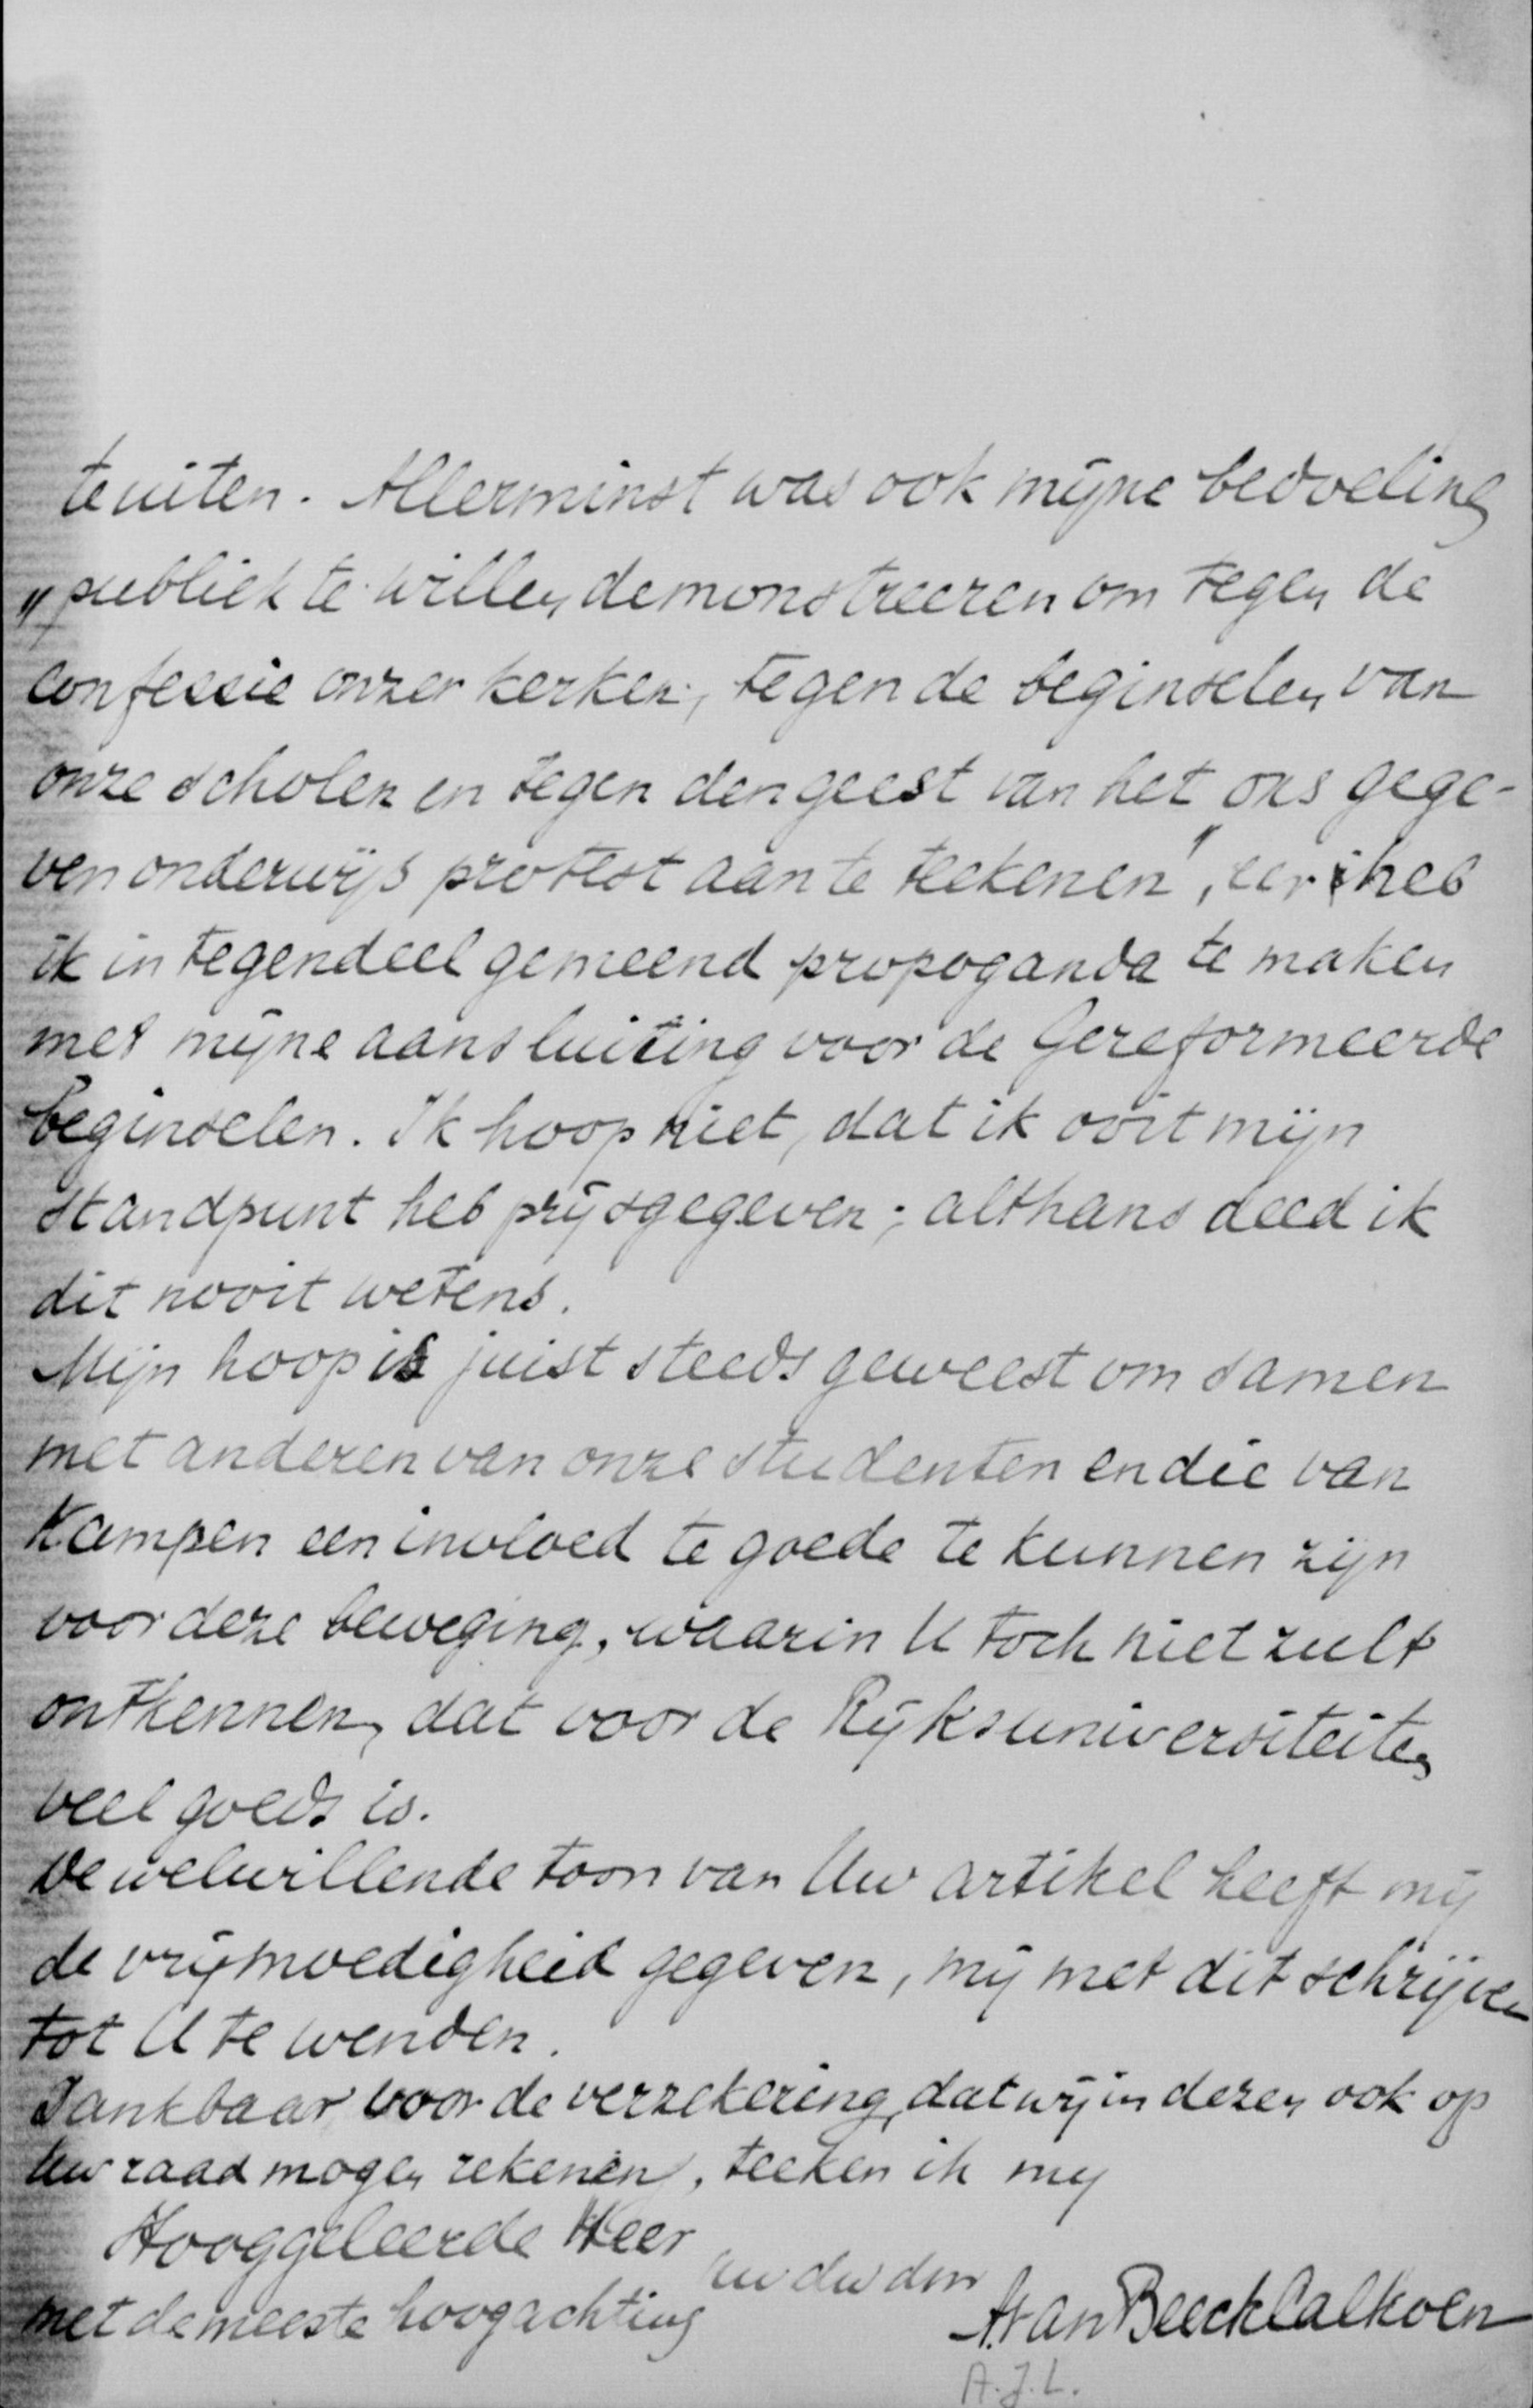 te uiten. Allerminst was ook mijne bedoeling
„publiek te willen demonstreeren om tegen de
confessie onzer kerken, tegen de beginselen van
onze scholen en tegen den geest van het ons gege-
ven onderwijs protest aan te teekenen", eer heb
ik in tegendeel gemeend propoganda te maken
met mijne aansluiting voor de Gereformeerde
beginselen. Ik hoop niet, dat ik ooit mijn
standpunt heb prijsgegeven; althans deed ik
dit nooit wetens.
Mijn hoop is juist steeds geweest om samen
met anderen van onze studenten en die van
Kampen een invloed te goede te kunnen zijn
voor deze beweging, waarin U toch niet zult
ontkennen, dat voor de Rijksuniversiteiten
veel goeds is.
De welwillende toon van Uw artikel heeft mij
de vrijmoedigheid gegeven, mij met dit schrijven
tot U te wenden.
Dankbaar voor de verzekering, dat wij in dezen ook op
Uw raad mogen rekenen, teeken ik mij
Hooggeleerde Heer
met de meeste hoogachting
Uw dw dnr
A. van Beeck Calkoen
A. J. L.